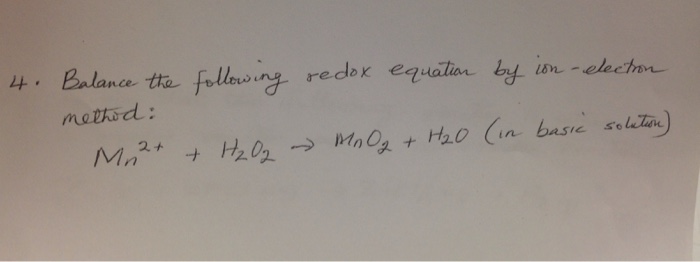 4. Balance the following redox equation by ion-electron
method:
Mn²⁺ + H₂O₂ → MnO₂ + H₂O (in basic solution)